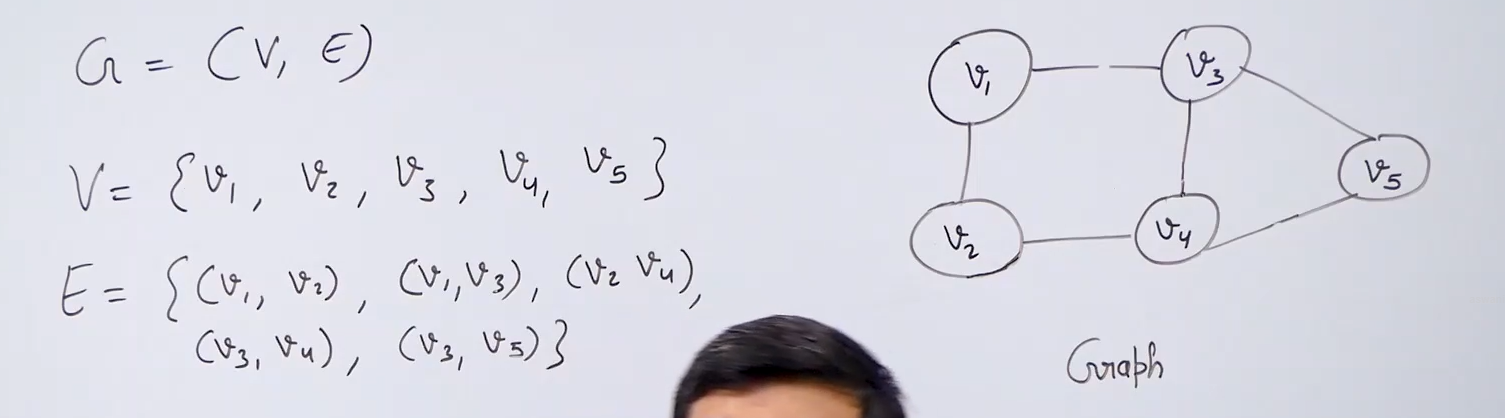 G = (V, E)
V = {v₁, v₂, v₃, v₄, v₅}
E = {(v₁, v₂), (v₁, v₃), (v₂ v₄),
(v₃, v₄), (v₃, v₅)}
v₁
v₃
v₅
v₂
v₄
Graph